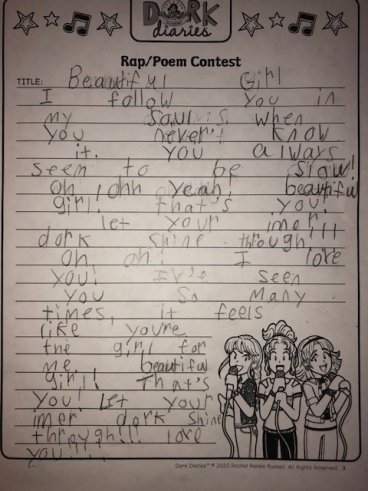 DORK
diaries
Rap/Poem Contest
TITLE: Beautiful Girl
I follow you in
my soul when
you never know
it. you always
seem to be slow!
oh ohh yeah! beautiful
girl! that's you!
let your iner
dork shine through!!!
oh ah! I love
you! Iv'e seen
you so many
times, it feels
like you're
the girl for
me. beautiful
girl! That's
you! let your
iner dork shine
through!!! love
you!!!!
Dork Diaries™ © 2020 Rachel Renée Russell. All Rights Reserved. 3